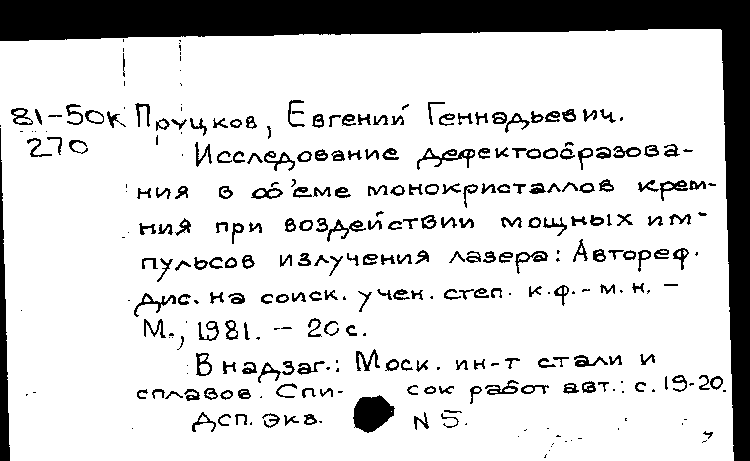 81-50к Пруцков, Евгений Геннадьевич.
270
Исследование дефектообразова-
ния в об'еме монокристаллов крем-
ния при воздействии мощных им-
пульсов излучения лазера: Автореф.
дис. на соиск. учен. степ. к.ф.-м.н. -
М., 1981. - 20 с.
В надзаг.: Моск. ин-т стали и
сплавов. Спи- сок работ авт.: с. 19-20.
Дсп. экз. N 5.